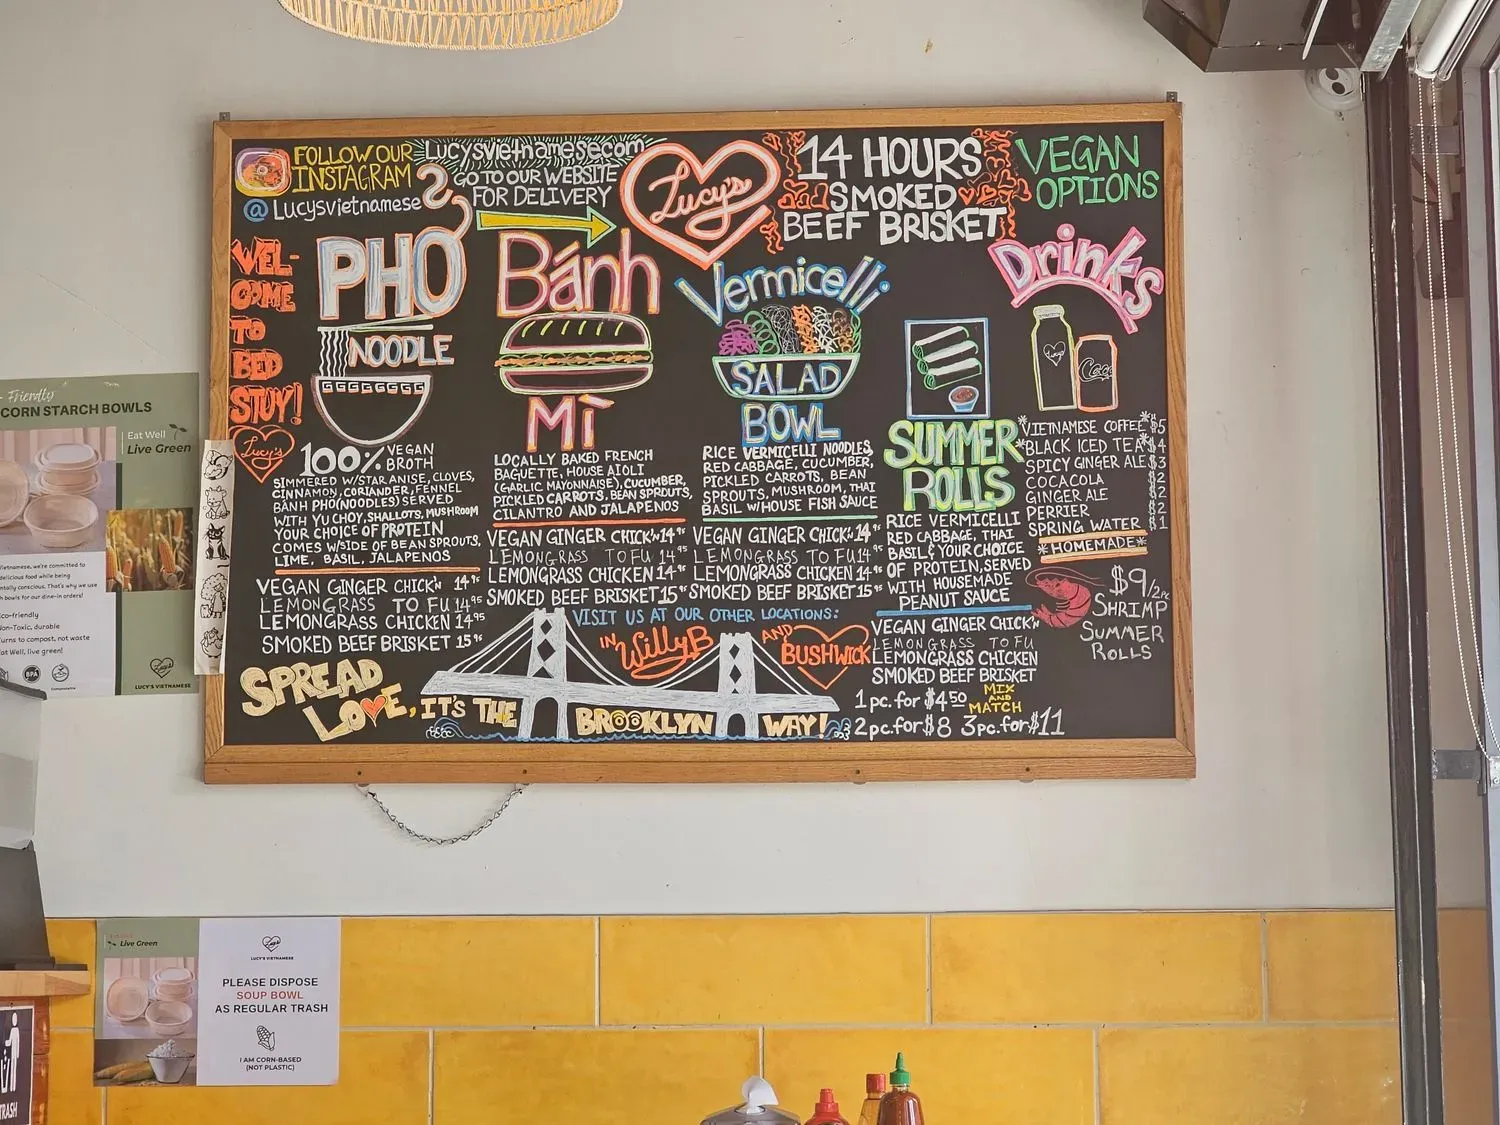 FOLLOW OUR
INSTAGRAM
@ Lucysvietnamese
Lucysvietnamese.com
GO TO OUR WEBSITE
FOR DELIVERY
Lucy's
14 HOURS
SMOKED
BEEF BRISKET
VEGAN
OPTIONS
WEL-
COME
TO
BED
STUY!
Lucy's
PHO
NOODLE
100% VEGAN
BROTH
SIMMERED W/STAR ANISE, CLOVES,
CINNAMON, CORIANDER, FENNEL
BANH PHO(NOODLES) SERVED
WITH YU CHOY, SHALLOTS, MUSHROOM
YOUR CHOICE OF PROTEIN
COMES W/SIDE OF BEAN SPROUTS,
LIME, BASIL, JALAPENOS
VEGAN GINGER CHICK'N 14.95
LEMONGRASS TO FU 14.95
LEMONGRASS CHICKEN 14.95
SMOKED BEEF BRISKET 15.95
Bánh
MÌ
LOCALLY BAKED FRENCH
BAGUETTE, HOUSE AIOLI
(GARLIC MAYONNAISE), CUCUMBER,
PICKLED CARROTS, BEAN SPROUTS,
CILANTRO AND JALAPENOS
VEGAN GINGER CHICK'N 14.95
LEMONGRASS TO FU 14.95
LEMONGRASS CHICKEN 14.95
SMOKED BEEF BRISKET 15.95
Vermicelli
SALAD
BOWL
RICE VERMICELLI NOODLES,
RED CABBAGE, CUCUMBER,
PICKLED CARROTS, BEAN
SPROUTS, MUSHROOM, THAI
BASIL W/HOUSE FISH SAUCE
VEGAN GINGER CHICK'N 14.95
LEMONGRASS TO FU 14.95
LEMONGRASS CHICKEN 14.95
SMOKED BEEF BRISKET 15.95
SUMMER
ROLLS
RICE VERMICELLI
RED CABBAGE, THAI
BASIL & YOUR CHOICE
OF PROTEIN, SERVED
WITH HOUSEMADE
PEANUT SAUCE
VEGAN GINGER CHICK'N
LEMONGRASS TO FU
LEMONGRASS CHICKEN
SMOKED BEEF BRISKET
1pc. for $4.50 MIX
AND
MATCH
2pc. for $8 3pc. for $11
Drinks
Lucy's
Coca
*VIETNAMESE COFFEE* $5
*BLACK ICED TEA* $4
SPICY GINGER ALE $3
COCACOLA $2
GINGER ALE $2
PERRIER $2
SPRING WATER $1
*HOMEMADE*
$9/2pc
SHRIMP
SUMMER
ROLLS
VISIT US AT OUR OTHER LOCATIONS:
IN WillyB AND BUSHWICK
SPREAD
LOVE, IT'S THE BROOKLYN WAY!
Friendly
CORN STARCH BOWLS
Eat Well
Live Green
Vietnamese, we're committed to
delicious food while being
bowls for our dine-in orders!
Eco-friendly
Non-Toxic, durable
Turns to compost, not waste
Eat Well, live green!
BPA
LUCY'S VIETNAMESE
Live Green
LUCY'S VIETNAMESE
PLEASE DISPOSE
SOUP BOWL
AS REGULAR TRASH
I AM CORN-BASED
(NOT PLASTIC)
TRASH